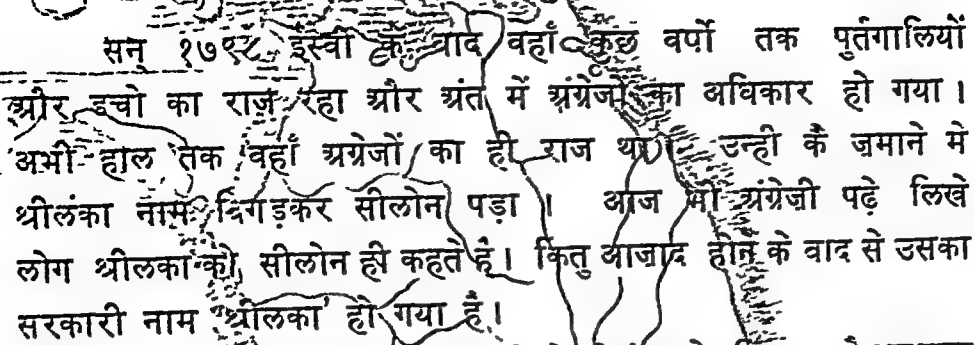 सन् १७९८ इस्वी के वाद वहाँ कुछ वर्पो तक पुर्तगालियों
और डचो का राज रहा और अंत में अंग्रेजों का अधिकार हो गया ।
अभी हाल तक वहाँ अग्रेजों का ही राज था । उन्ही के ज़माने मे
श्रीलंका नाम विगड़कर सीलोन पड़ा । आज भी अंग्रेजी पढ़े लिखे
लोग श्रीलका को सीलोन ही कहते है । कितु आजाद होने के वाद से उसका
सरकारी नाम 'श्रीलका' हो गया है ।